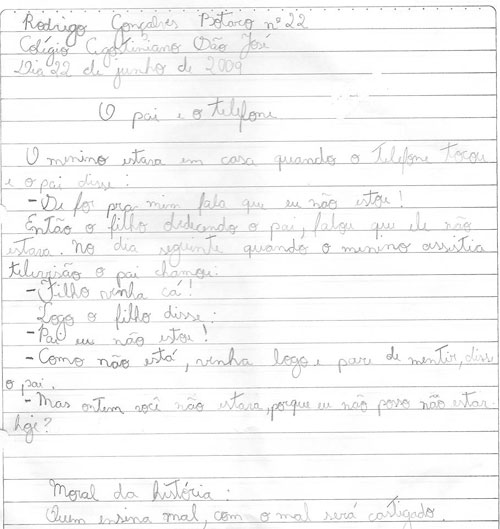 Rodrigo Gonçalves Botaro nº 22
Colégio Agostiniano São José
Dia 22 de junho de 2009
O pai e o telefone
O menino estava em casa quando o telefone tocou
e o pai disse:
- Se for pra mim fala que eu não estou!
Então o filho obdecendo o pai, falou que ele não
estava. No dia seguinte quando o menino assistia
televisão o pai chamou:
- Filho venha cá!
Logo o filho disse:
- Pai eu não estou!
- Como não está, venha logo e pare de mentir, disse
o pai.
- Mas ontem você não estava, porque eu não posso não estar
hoje?
Moral da história:
Quem ensina mal, com o mal será castigado.